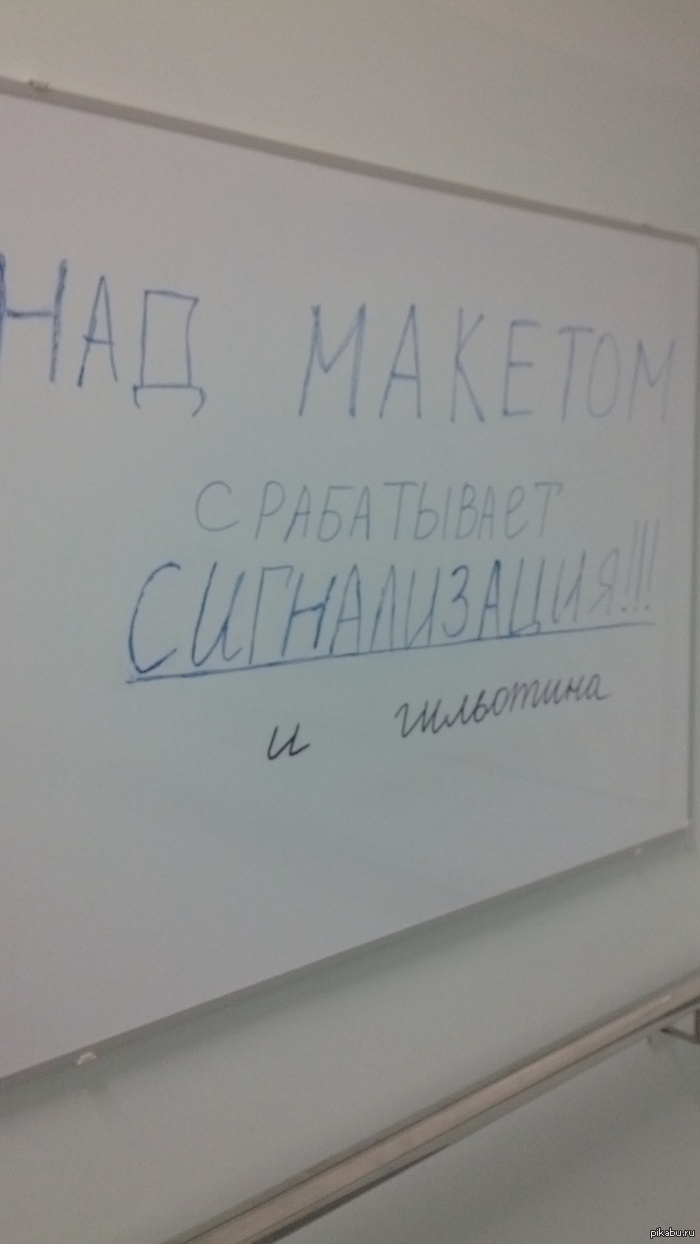 НАД МАКЕТОМ
СРАБАТЫВАЕТ
СИГНАЛИЗАЦИЯ!!!
и гильотина
pikabu.ru